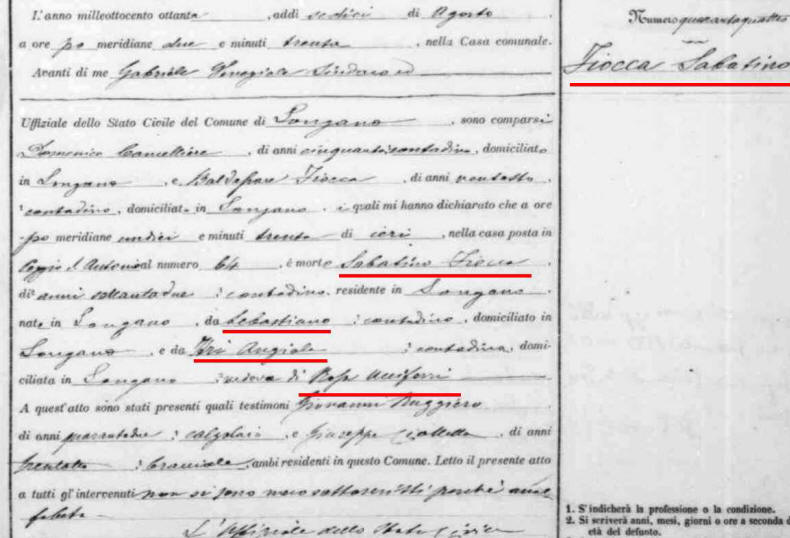 L'anno milleottocento ottanta, addì sedici di Agosto,
a ore po meridiane due e minuti trenta, nella Casa comunale.
Avanti di me Gabriele Sindaco ed
Uffiziale dello Stato Civile del Comune di Longano, sono comparsi
Domenico Cancelliere, di anni cinquanta, contadino, domiciliato
in Longano, e Baldassare Fiocca, di anni ventotto,
contadino, domiciliato in Longano, i quali mi hanno dichiarato che a ore
po meridiane undici e minuti trenta di ieri, nella casa posta in
al numero 64, è morto Sabatino Fiocca,
di anni settantadue, contadino, residente in Longano,
nato in Longano, da Sebastiano, contadino, domiciliato in
Longano, e da Angiola, contadina, domi-
ciliata in Longano, vedovo di Rosa
A quest'atto sono stati presenti quali testimoni Giovanni Ruggiero,
di anni quarantadue, calzolaio, e Giuseppe, di anni
trentotto, bracciale, ambi residenti in questo Comune. Letto il presente atto
a tutti gl'intervenuti non si sono meco sottoscritti perchè anal-
fabeti
L'Uffiziale dello Stato Civile
Numero quarantaquattro
Fiocca Sabatino
1. S'indicherà la professione o la condizione.
2. Si scriverà anni, mesi, giorni o ore a seconda d
età del defunto.